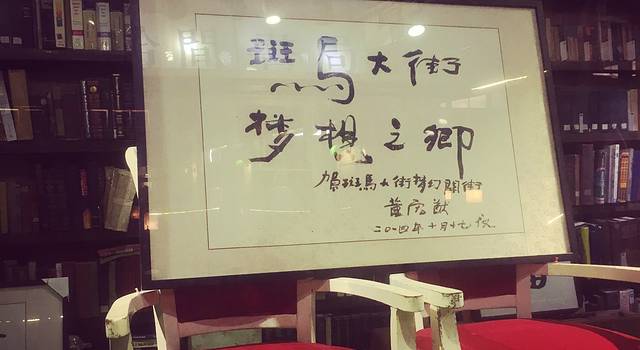 斑馬大街
梦想之鄉
賀斑馬大街梦幻開街
黄宏猷
二〇一四年十月十七夜